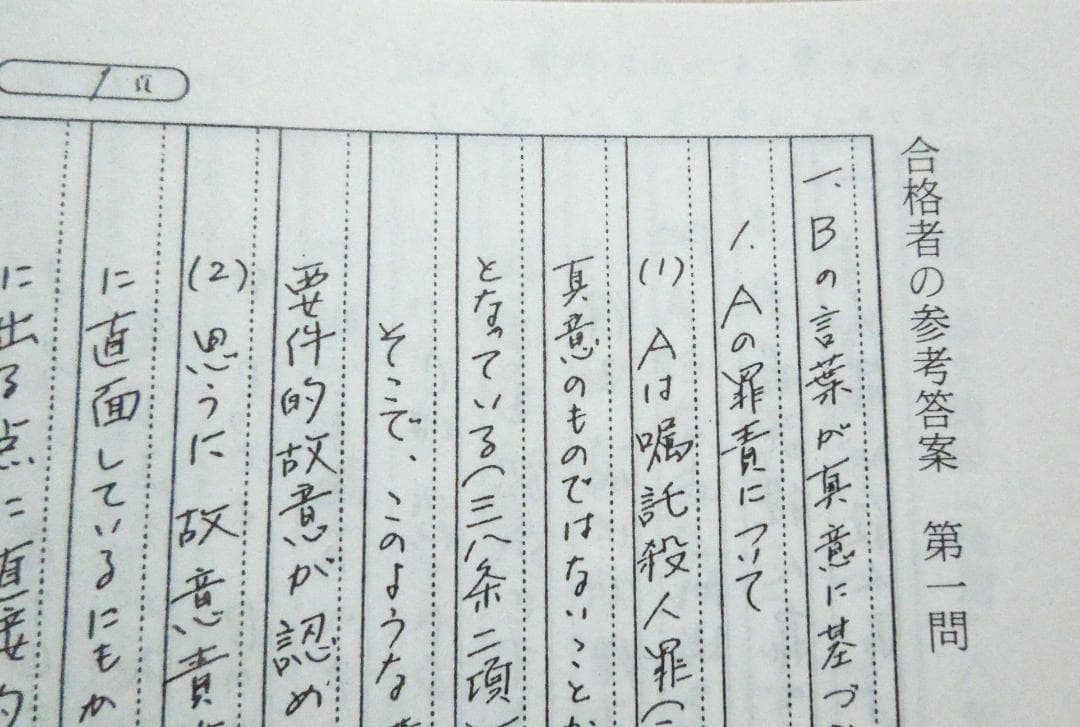 合格者の参考答案 第一問
一、Bの言葉が真意に基づ
1. Aの罪責について
(1) Aは嘱託殺人罪(
真意のものではないことが
となっている(三八条二項
そこで、このような
要件的故意が認め
(2) 思うに故意責
に直面しているにもか
に出る点に直接的
1頁